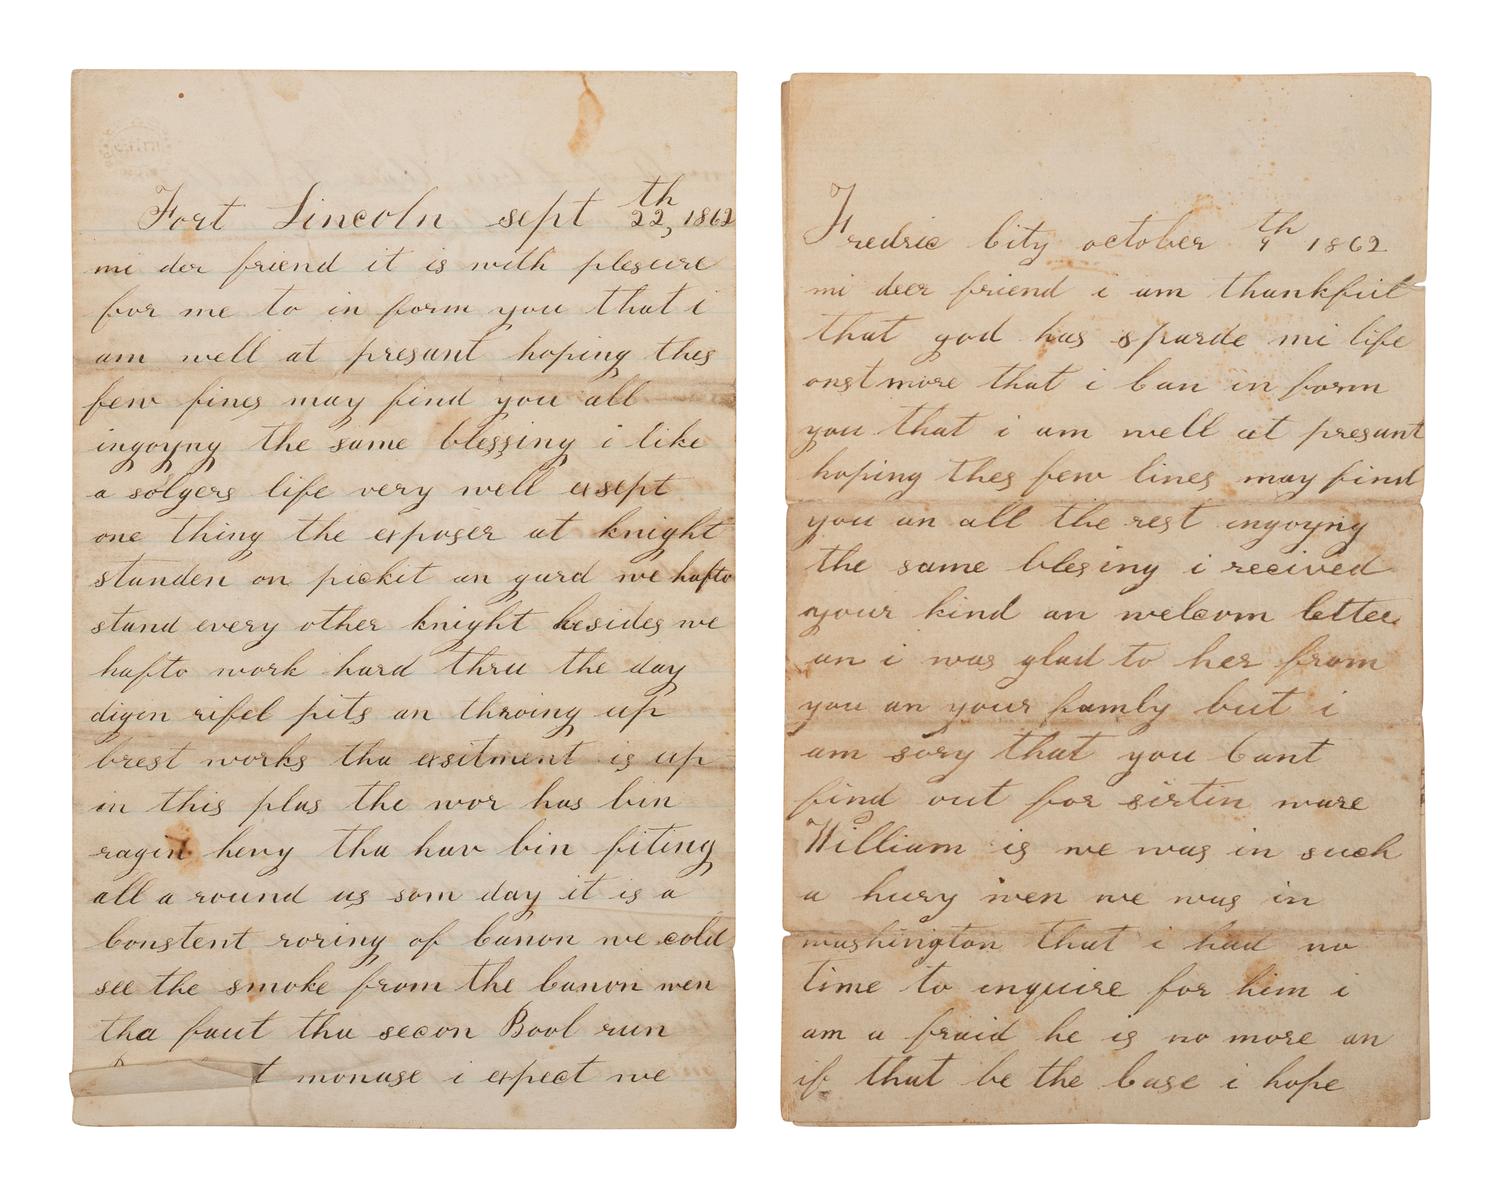 Fort Lincoln sept 22th, 1862
mi der friend it is with plesure
for me to in form you that i
am well at presant hoping thes
few fines may find you all
ingoyng the same blessing i like
a solgers life very well exsept
one thing the exposer at knight
standen on pickit an gard we hafto
stand every other knight besides we
hafto work hard thru the day
digen rifel pits an throing up
brest works tha exsitment is up
in this plas the wor has bin
ragin hevy tha hav bin fiting
all a round us som day it is a
Constent roring of Canon we cold
see the smoke from the Canon wen
tha faut tha secon Bool run
t monase i expect we
Fredric City october 9th 1862
mi deer friend i am thankful
that god has sparde mi life
onst more that i Can in form
you that i am well at presant
hoping thes few lines may find
you an all the rest ingoyng
the same blesing i recived
your kind an welcom letter
an i was glad to her from
you an your famly but i
am sory that you Cant
find out for sirtin ware
William is we was in such
a hury wen we was in
washington that i had no
time to inquire for him i
am a fraid he is no more an
if that be the Case i hope